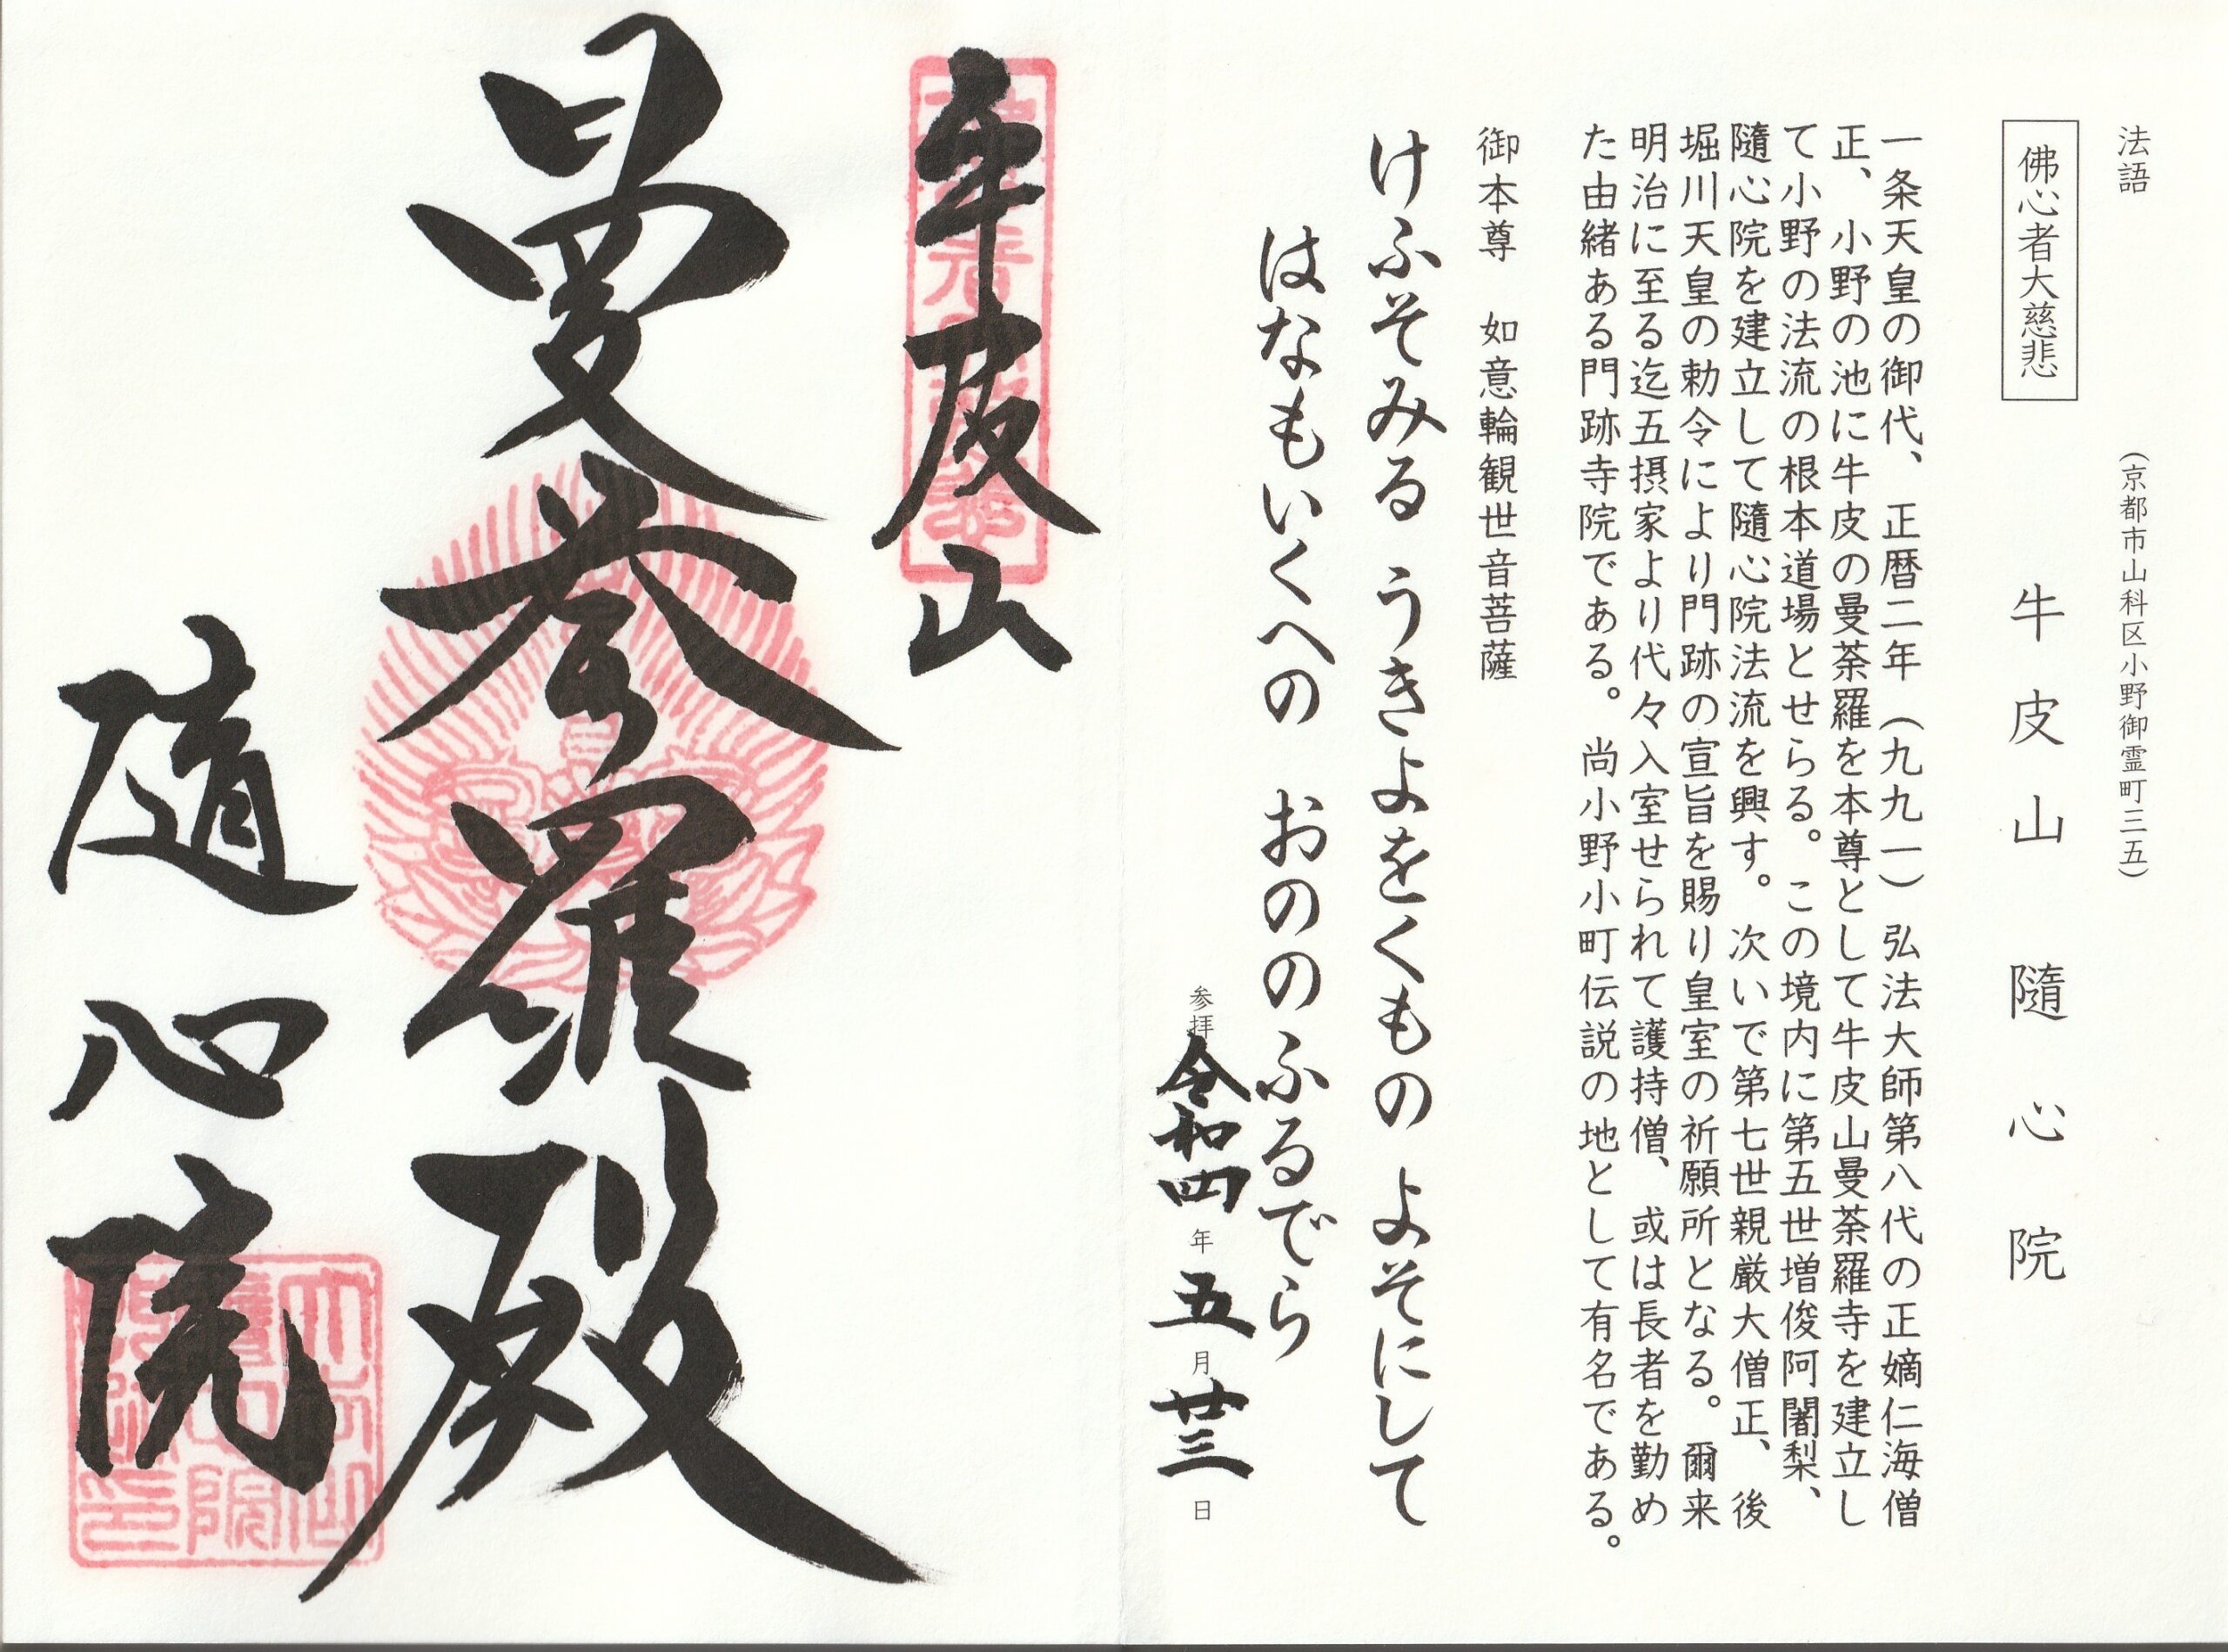 法語
(京都市山科区小野御霊町三五)
佛心者大慈悲
牛皮山 隨心院
一条天皇の御代、正暦二年(九九一)弘法大師第八代の正嫡仁海僧
正、小野の池に牛皮の曼荼羅を本尊として牛皮山曼荼羅寺を建立し
て小野の法流の根本道場とせらる。この境内に第五世増俊阿闍梨、
隨心院を建立して隨心院法流を興す。次いで第七世親厳大僧正、後
堀川天皇の勅令により門跡の宣旨を賜り皇室の祈願所となる。爾来
明治に至る迄五摂家より代々入室せられて護持僧、或は長者を勤め
た由緒ある門跡寺院である。尚小野小町伝説の地として有名である。
御本尊 如意輪観世音菩薩
けふそみる うきよをくもの よそにして
はなもいくへの おののふるでら
参拝 令和四年五月廿三日
牛皮山
曼荼羅殿
隨心院